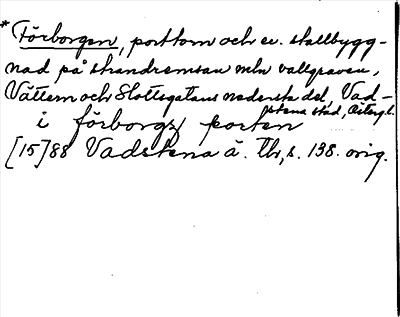 * Förborgen, porttorn och ev. stallbygg-
nad på strandremsan mln vallgraven,
Vättern och Slottsgatans nedersta del, Vad-
stena stad, Östergl.
i förborgz porten
[15]88 Vadstena ä. Tb, s. 138. orig.